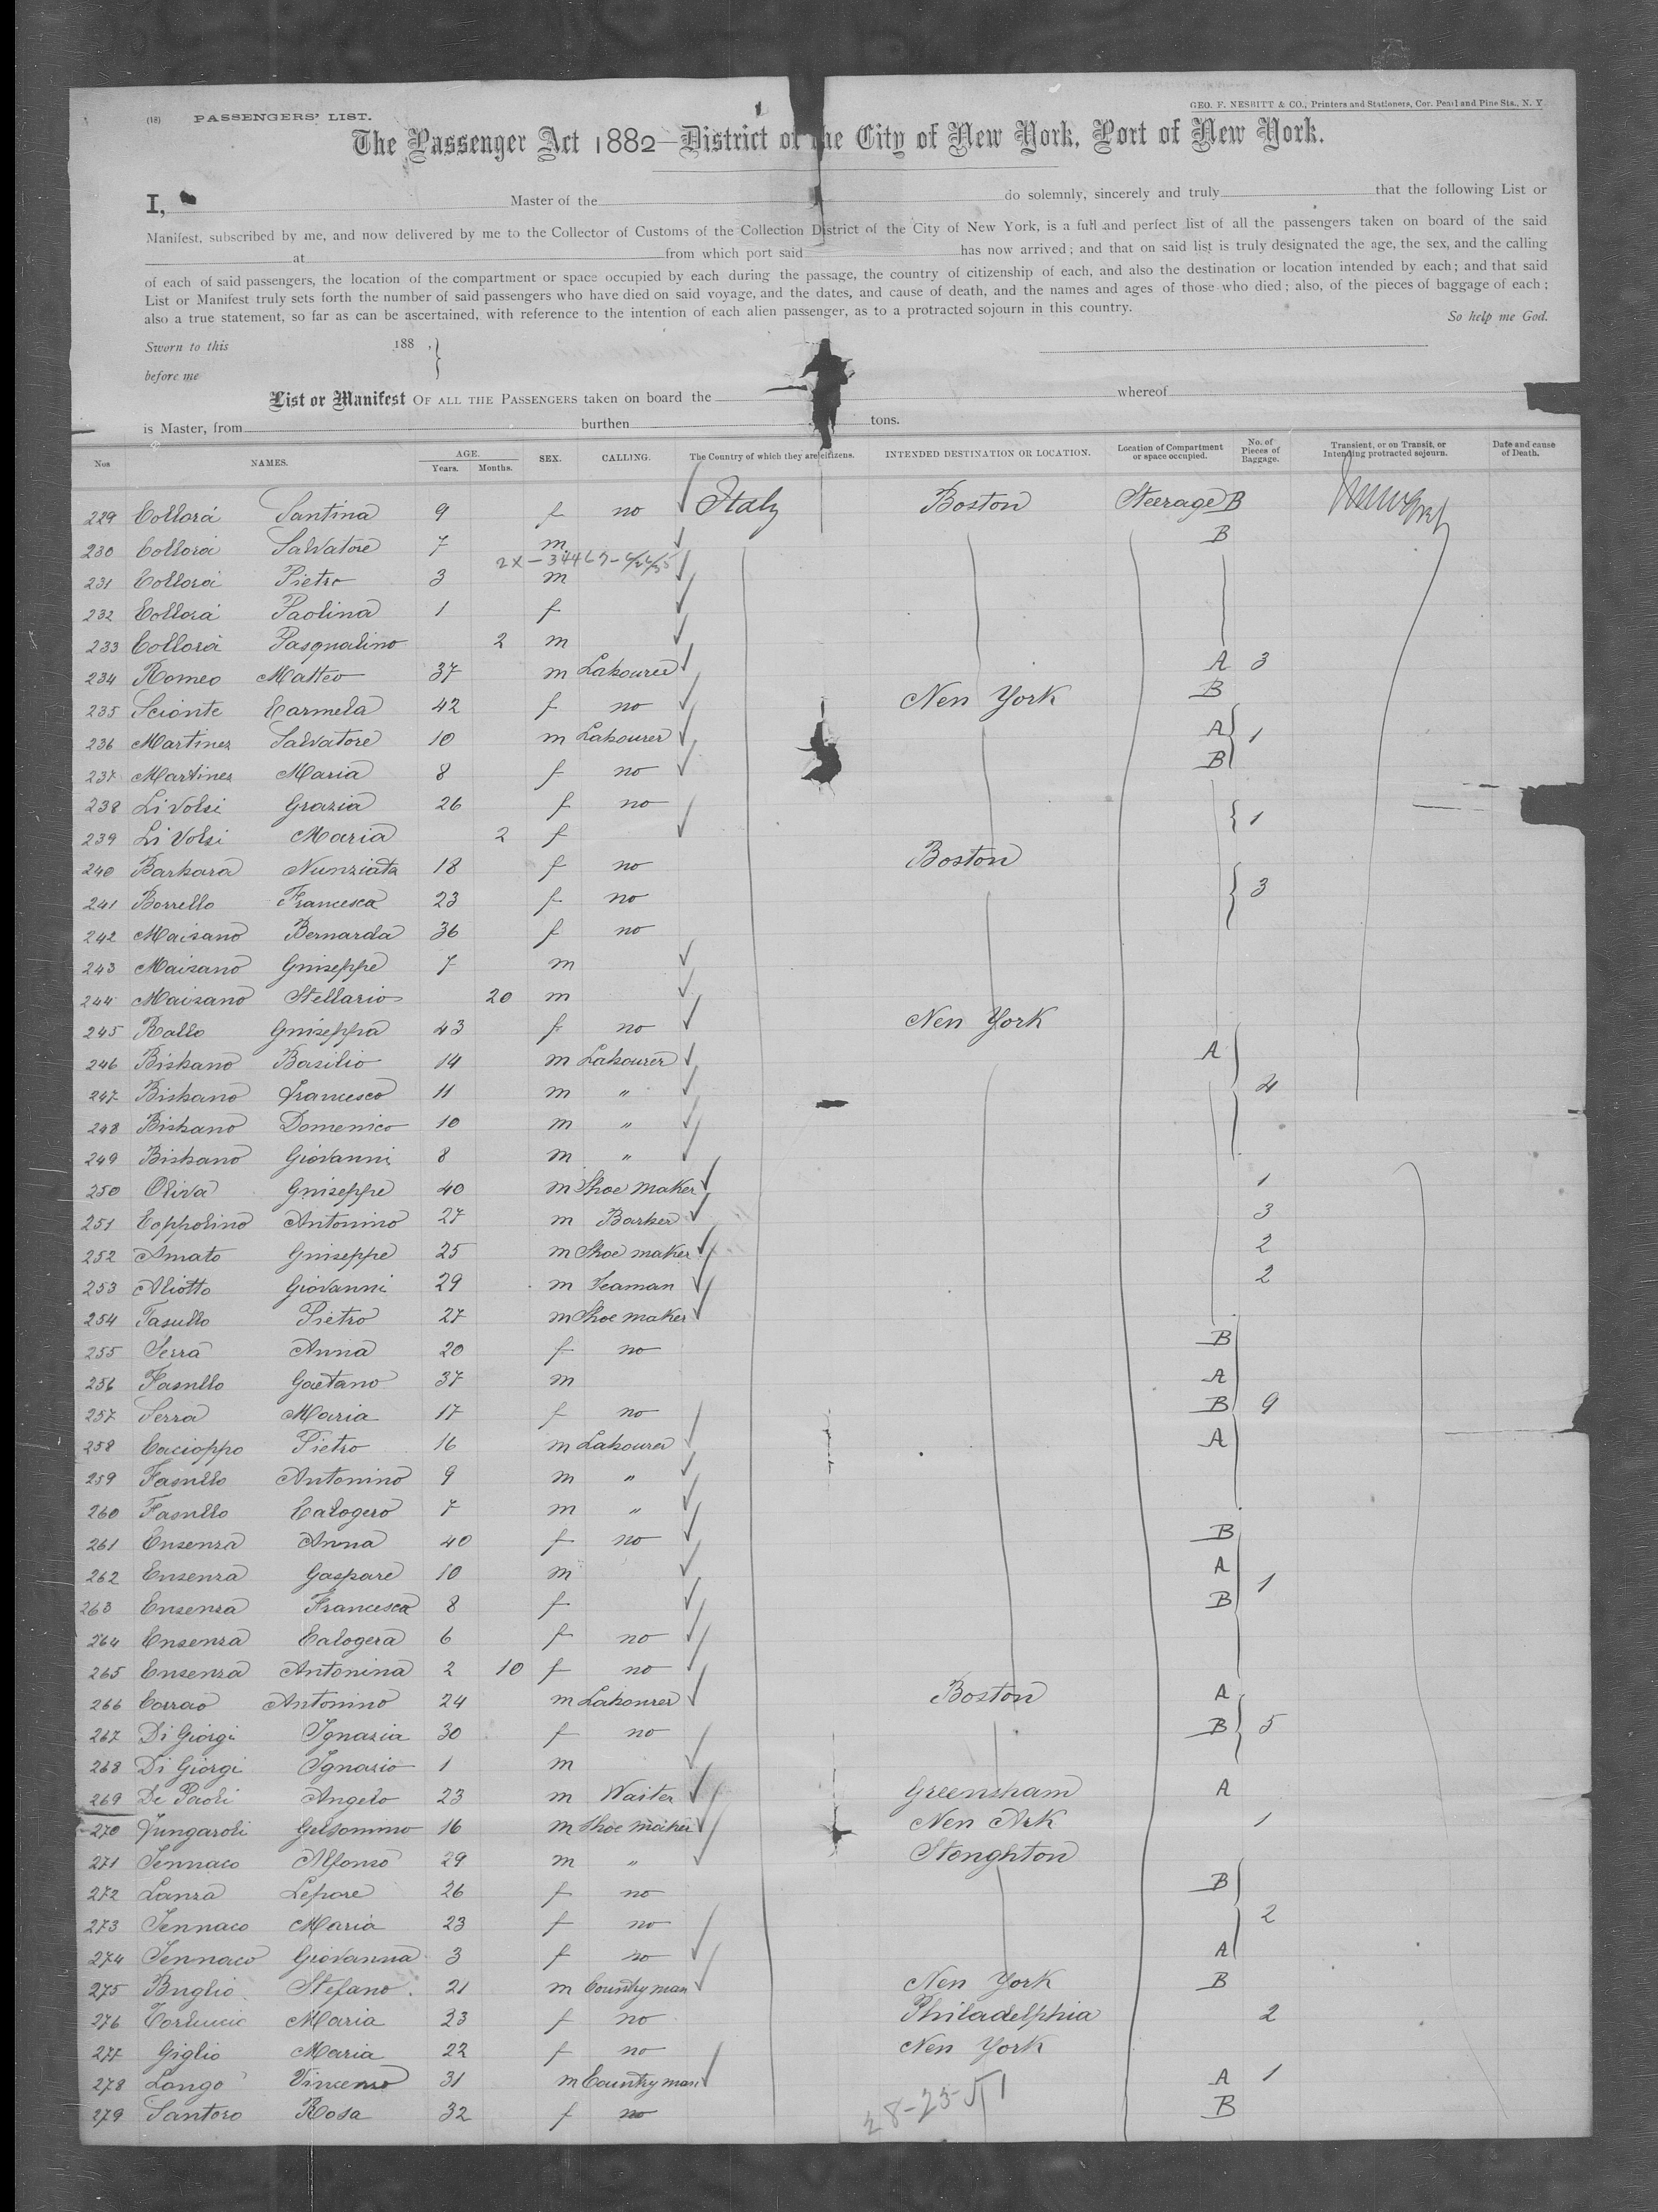 (18) PASSENGERS' LIST.
GEO. F. NESBITT & CO., Printers and Stationers, Cor. Pearl and Pine Sts., N. Y.
The Passenger Act 1882—District of the City of New York, Port of New York.
I, Master of the do solemnly, sincerely and truly that the following List or
Manifest, subscribed by me, and now delivered by me to the Collector of Customs of the Collection District of the City of New York, is a full and perfect list of all the passengers taken on board of the said
at from which port said has now arrived; and that on said list is truly designated the age, the sex, and the calling
of each of said passengers, the location of the compartment or space occupied by each during the passage, the country of citizenship of each, and also the destination or location intended by each; and that said
List or Manifest truly sets forth the number of said passengers who have died on said voyage, and the dates, and cause of death, and the names and ages of those who died; also, of the pieces of baggage of each;
also a true statement, so far as can be ascertained, with reference to the intention of each alien passenger, as to a protracted sojourn in this country. So help me God.
Sworn to this 188 ,
before me
List or Manifest OF ALL THE PASSENGERS taken on board the whereof
is Master, from burthen tons.
Nos NAMES. AGE. Years. Months. SEX. CALLING. The Country of which they are citizens. INTENDED DESTINATION OR LOCATION. Location of Compartment or space occupied. No. of Pieces of Baggage. Transient, or on Transit, or Intending protracted sojourn. Date and cause of Death.
229 Collorá Santina 9 f no Italy Boston Steerage B
230 Collorá Salvatore 7 m B
231 Collorá Pietro 3 m
232 Collorá Paolina 1 f
233 Collorá Pasqualino 2 m
234 Romeo Matteo 37 m Labourer A 3
235 Scionte Carmela 42 f no New York B
236 Martines Salvatore 10 m Labourer A 1
237 Martines Maria 8 f no B
238 Li Volsi Grazia 26 f no 1
239 Li Volsi Maria 2 f
240 Barbara Nunziata 18 f no Boston
241 Borrello Francesca 23 f no 3
242 Maisano Bernarda 36 f no
243 Maisano Guiseppe 7 m
244 Maisano Stellario 20 m
245 Rallo Guiseppa 43 f no New York
246 Bisbano Basilio 14 m Labourer A
247 Bisbano Francesco 11 m " 4
248 Bisbano Domenico 10 m "
249 Bisbano Giovanni 8 m "
250 Oliva Guiseppe 40 m Shoe maker 1
251 Coppolino Antonino 27 m Barber 3
252 Amato Guiseppe 25 m Shoe maker 2
253 Aliotto Giovanni 29 m Seaman 2
254 Fasullo Pietro 27 m Shoe maker
255 Serra Anna 20 f no B
256 Fasullo Gaetano 37 m A
257 Serra Maria 17 f no B 9
258 Cacioppo Pietro 16 m Labourer A
259 Fasullo Antonino 9 m "
260 Fasullo Calogero 7 m "
261 Ensenza Anna 40 f no B
262 Ensenza Gaspare 10 m A 1
263 Ensenza Francesca 8 f B
264 Ensenza Calogera 6 f no
265 Ensenza Antonina 2 10 f no
266 Corrao Antonino 24 m Labourer Boston A
267 Di Giorgi Ignazia 30 f no B 5
268 Di Giorgi Ignazio 1 m
269 De Paoli Angelo 23 m Waiter Greensham A
270 Jungaroli Gelsomino 16 m Shoe maker New Ark 1
271 Iennaco Alfonso 29 m " Stonghton
272 Lanza Lepore 26 f no B
273 Iennaco Maria 23 f no 2
274 Iennaco Giovanna 3 f no A
275 Buglio Stefano 21 m Country man New York B
276 Maria 23 f no Philadelphia 2
277 Giglio Maria 22 f no New York
278 Longo Vincenzo 31 m Country man A 1
279 Santoro Rosa 32 f no B